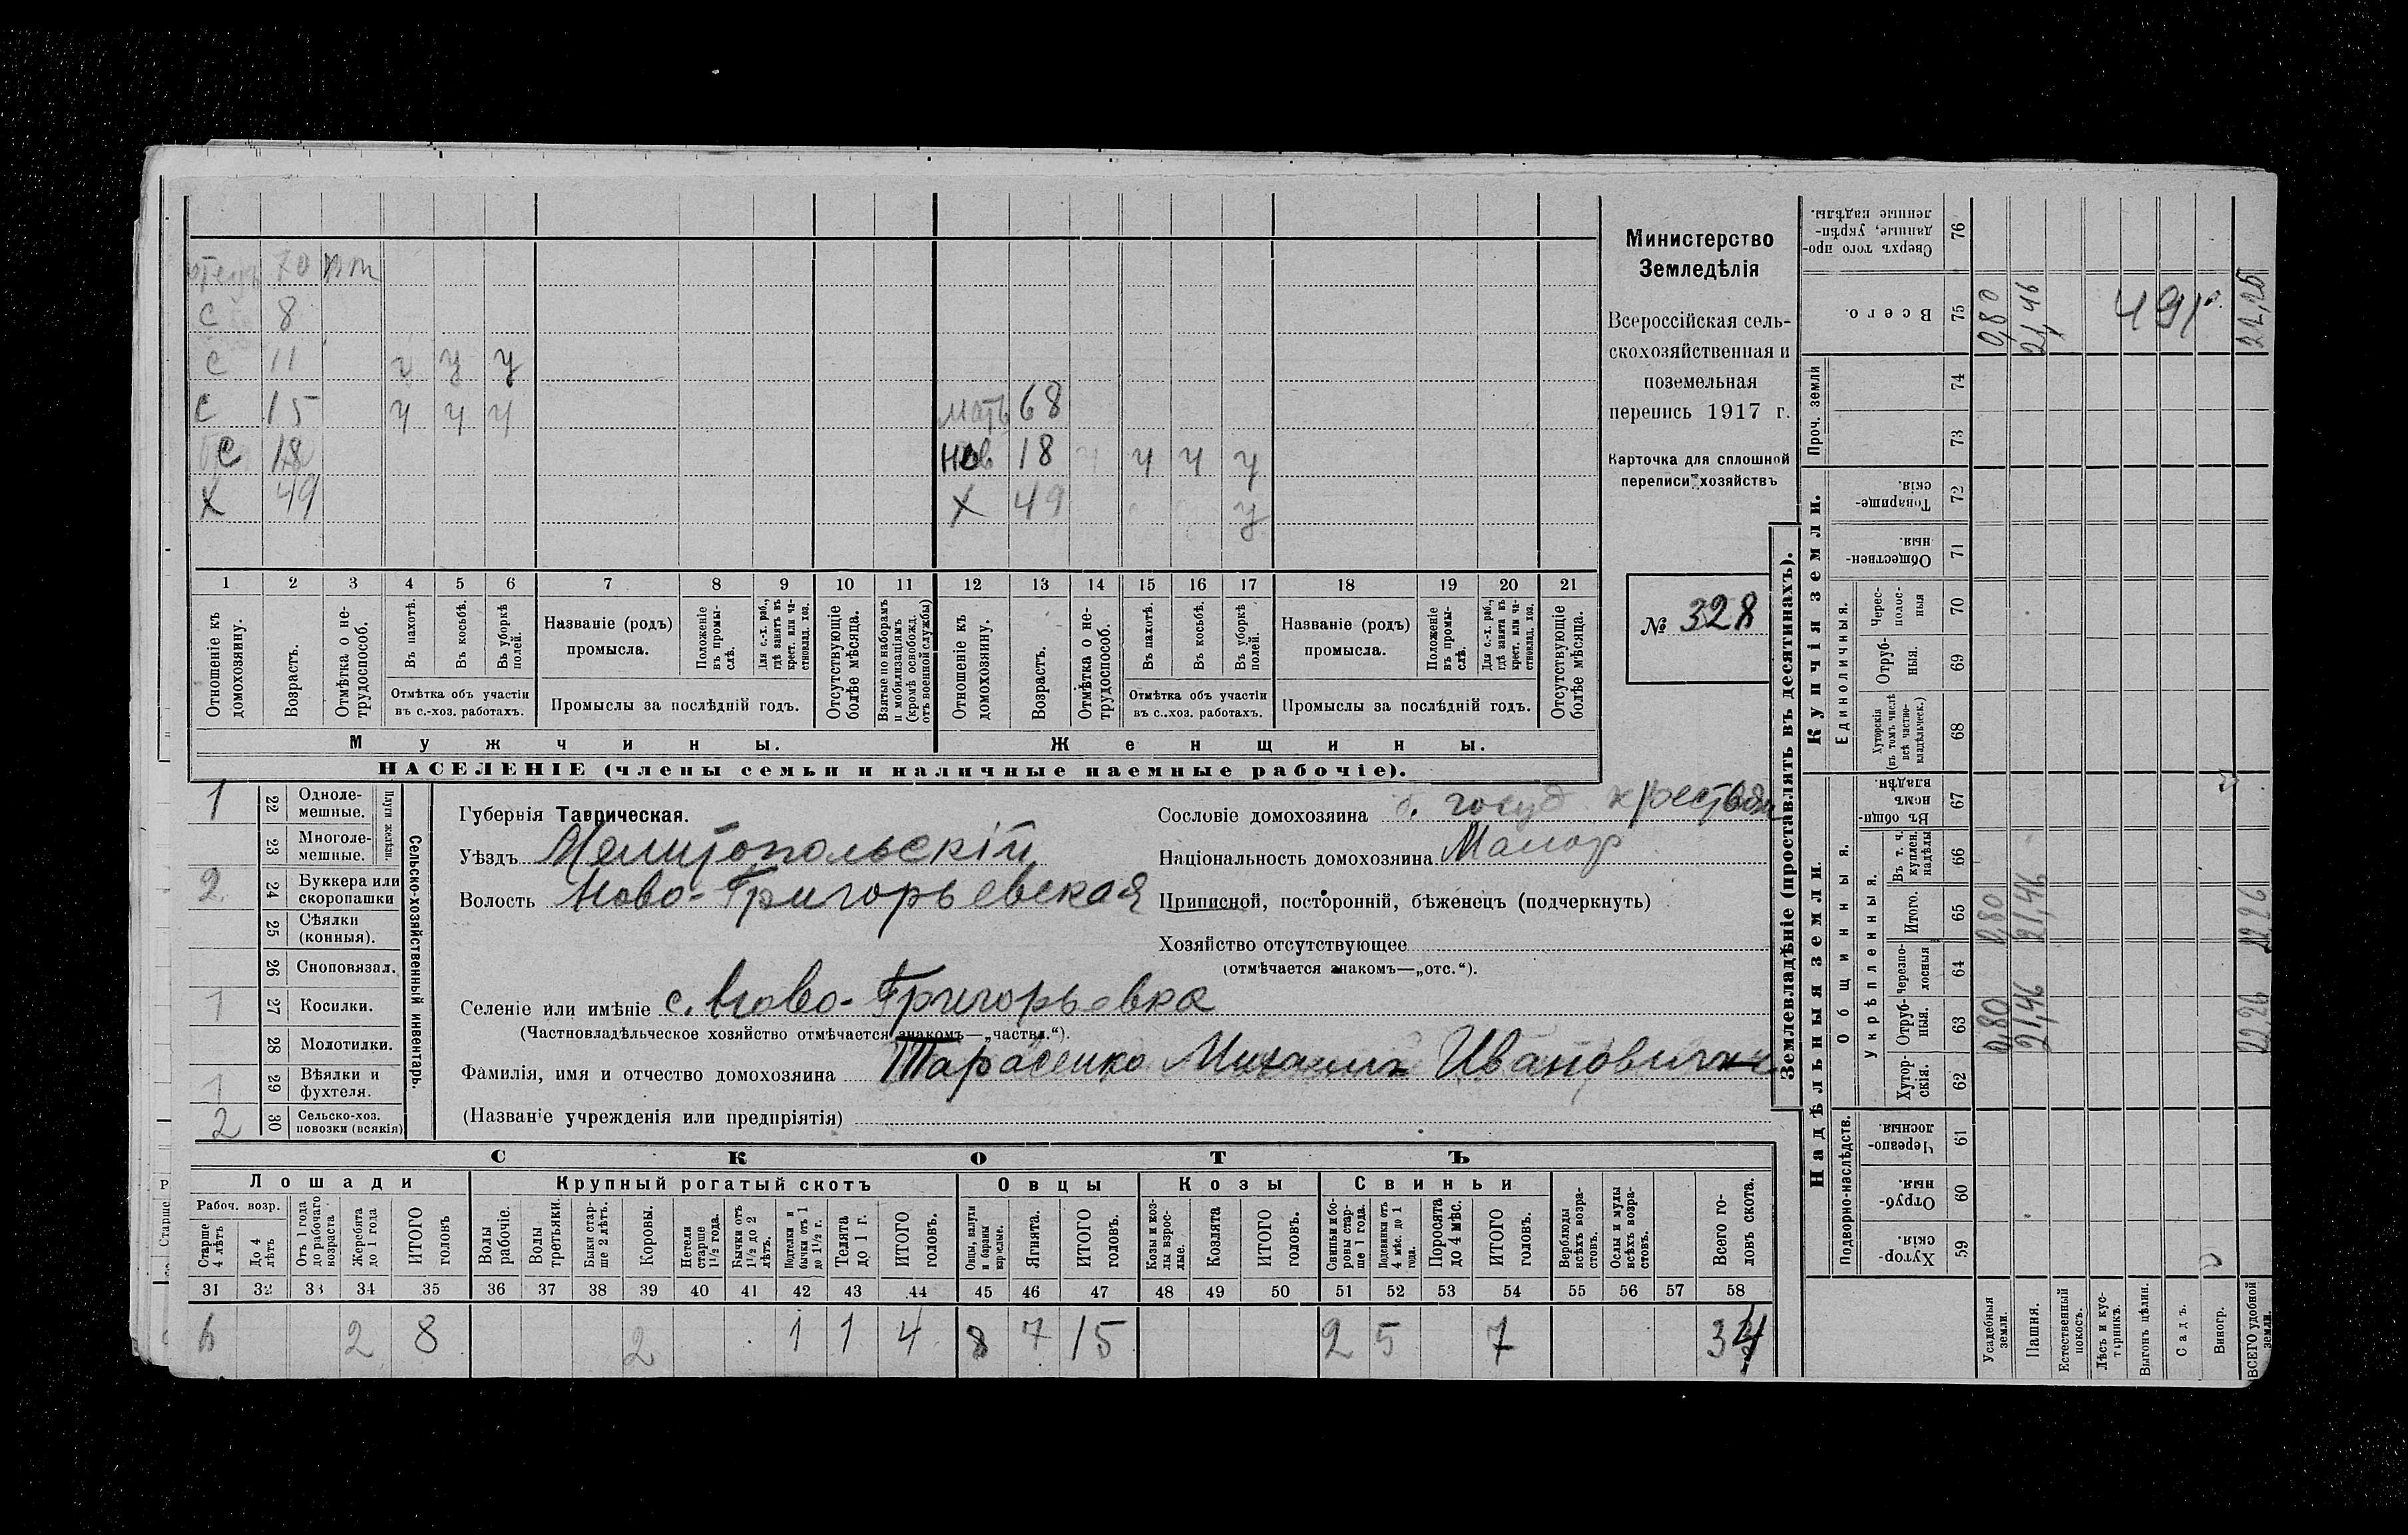 отецъ 70 нт
С 8
С 11 ч у у
С 15 ч ч ч мать 68
С 18 нев 18 ч ч ч у
Х 49 Х 49 у
1 2 3 4 5 6 7 8 9 10 11 12 13 14 15 16 17 18 19 20 21
Отношеніе къ домохозяину.
Возрастъ.
Отмѣтка о не-трудоспособ.
Въ пахотѣ.
Въ косьбѣ.
Въ уборкѣ полей.
Отмѣтка объ участіи въ с.-хоз. работахъ.
Названіе (родъ) промысла.
Положеніе въ промы-слѣ.
Для с.-х. раб., гдѣ занятъ въ крест. или ча-стновлад. хоз.
Промыслы за послѣдній годъ.
Отсутствующіе болѣе мѣсяца.
Взятые по наборамъ и мобилизаціямъ (кромѣ освобожд. отъ военной службы)
Отношеніе къ домохозяину.
Возрастъ.
Отмѣтка о не-трудоспособ.
Въ пахотѣ.
Въ косьбѣ.
Въ уборкѣ полей.
Отмѣтка объ участіи въ с.-хоз. работахъ.
Названіе (родъ) промысла.
Положеніе въ промы-слѣ.
Для с.-х. раб., гдѣ занята въ крест. или ча-стновлад. хоз.
Промыслы за послѣдній годъ.
Отсутствующіе болѣе мѣсяца.
Мужчины. Женщины.
НАСЕЛЕНІЕ (члены семьи и наличные наемные рабочіе).
Министерство
Земледѣлія
Всероссійская сель-
скохозяйственная и
поземельная
перепись 1917 г.
Карточка для сплошной
переписи хозяйствъ
№ 328
Сельско-хозяйственный инвентарь.
Плуги желѣзн.
1 22 Одноле-мешные.
23 Многоле-мешные.
2 24 Буккера или скоропашки
25 Сѣялки (конныя).
26 Сноповязал.
1 27 Косилки.
28 Молотилки.
1 29 Вѣялки и фухтеля.
2 30 Сельско-хоз. повозки (всякія)
Губернія Таврическая.
Уѣздъ Мелитопольскій
Волость Ново-Григорьевская
Сословіе домохозяина б. госуд крестьян
Національность домохозяина Малор
Приписной, посторонній, бѣженецъ (подчеркнуть)
Хозяйство отсутствующее
(отмѣчается знакомъ—„отс.“).
Селеніе или имѣніе с. Ново-Григорьевка
(Частновладѣльческое хозяйство отмѣчается знакомъ—„частвл.“).
Фамилія, имя и отчество домохозяина Тарасенко Михаилъ Ивановичъ
(Названіе учрежденія или предпріятія)
СКОТЪ
Лошади Крупный рогатый скотъ Овцы Козы Свиньи
Рабоч. возр.
Старше 4 лѣтъ
До 4 лѣтъ
Отъ 1 года до рабочаго возраста
Жеребята до 1 года
ИТОГО головъ
Волы рабочіе.
Волы третьяки.
Быки стар-ше 2 лѣтъ.
Коровы.
Нетели старше 1½ года.
Бычки отъ 1½ до 2 лѣтъ.
Подтелки и бычки отъ 1 до 1½ г.
Телята до 1 г.
ИТОГО головъ.
Овцы, валухи и бараны взрослые.
Ягнята.
ИТОГО головъ.
Козы и коз-лы взрос-лые.
Козлята
ИТОГО головъ.
Свиньи и бо-ровы стар-ше 1 года.
Подсвинки отъ 4 мѣс. до 1 года.
Поросята до 4 мѣс.
ИТОГО головъ.
Верблюды всѣхъ возра-стовъ.
Ослы и мулы всѣхъ возра-стовъ.
Всего го-ловъ скота.
31 32 33 34 35 36 37 38 39 40 41 42 43 44 45 46 47 48 49 50 51 52 53 54 55 56 57 58
6 2 8 2 1 1 4 8 7 15 2 5 7 34
Землевладѣніе (проставлять въ десятинахъ).
Купчія земли.
Надѣльныя земли.
Сверхъ того про-данные, укрѣп-ленные надѣлы. 76
Всего. 75 0,80 21,46 49 22,26
Проч. земли 74 73
Товарище-скія. 72
Обществен-ныя. 71
Единоличныя.
Черес-полос-ныя 70
Отруб-ныя. 69
Хуторскія (въ томъ числѣ всѣ частно-владѣльческ.) 68
Общинныя.
Въ общи-номъ владѣн. 67
Укрѣпленныя.
Въ т. ч. куплен. надѣлы 66
Итого. 65 0,80 21,46 22,26
Черезпо-лосныя 64
Отруб-ныя. 63 0,80 21,46 22,26
Хутор-скія. 62
Подворно-наслѣдств.
Черезпо-лосныя. 61
Отруб-ныя. 60
Хутор-скія. 59
Усадебныя земли.
Пашня.
Естественный покосъ.
Лѣсъ и кус-тарникъ.
Выгонъ цѣлин.
Садъ.
Виногр.
ВСЕГО удобной земли.
Р
Старше